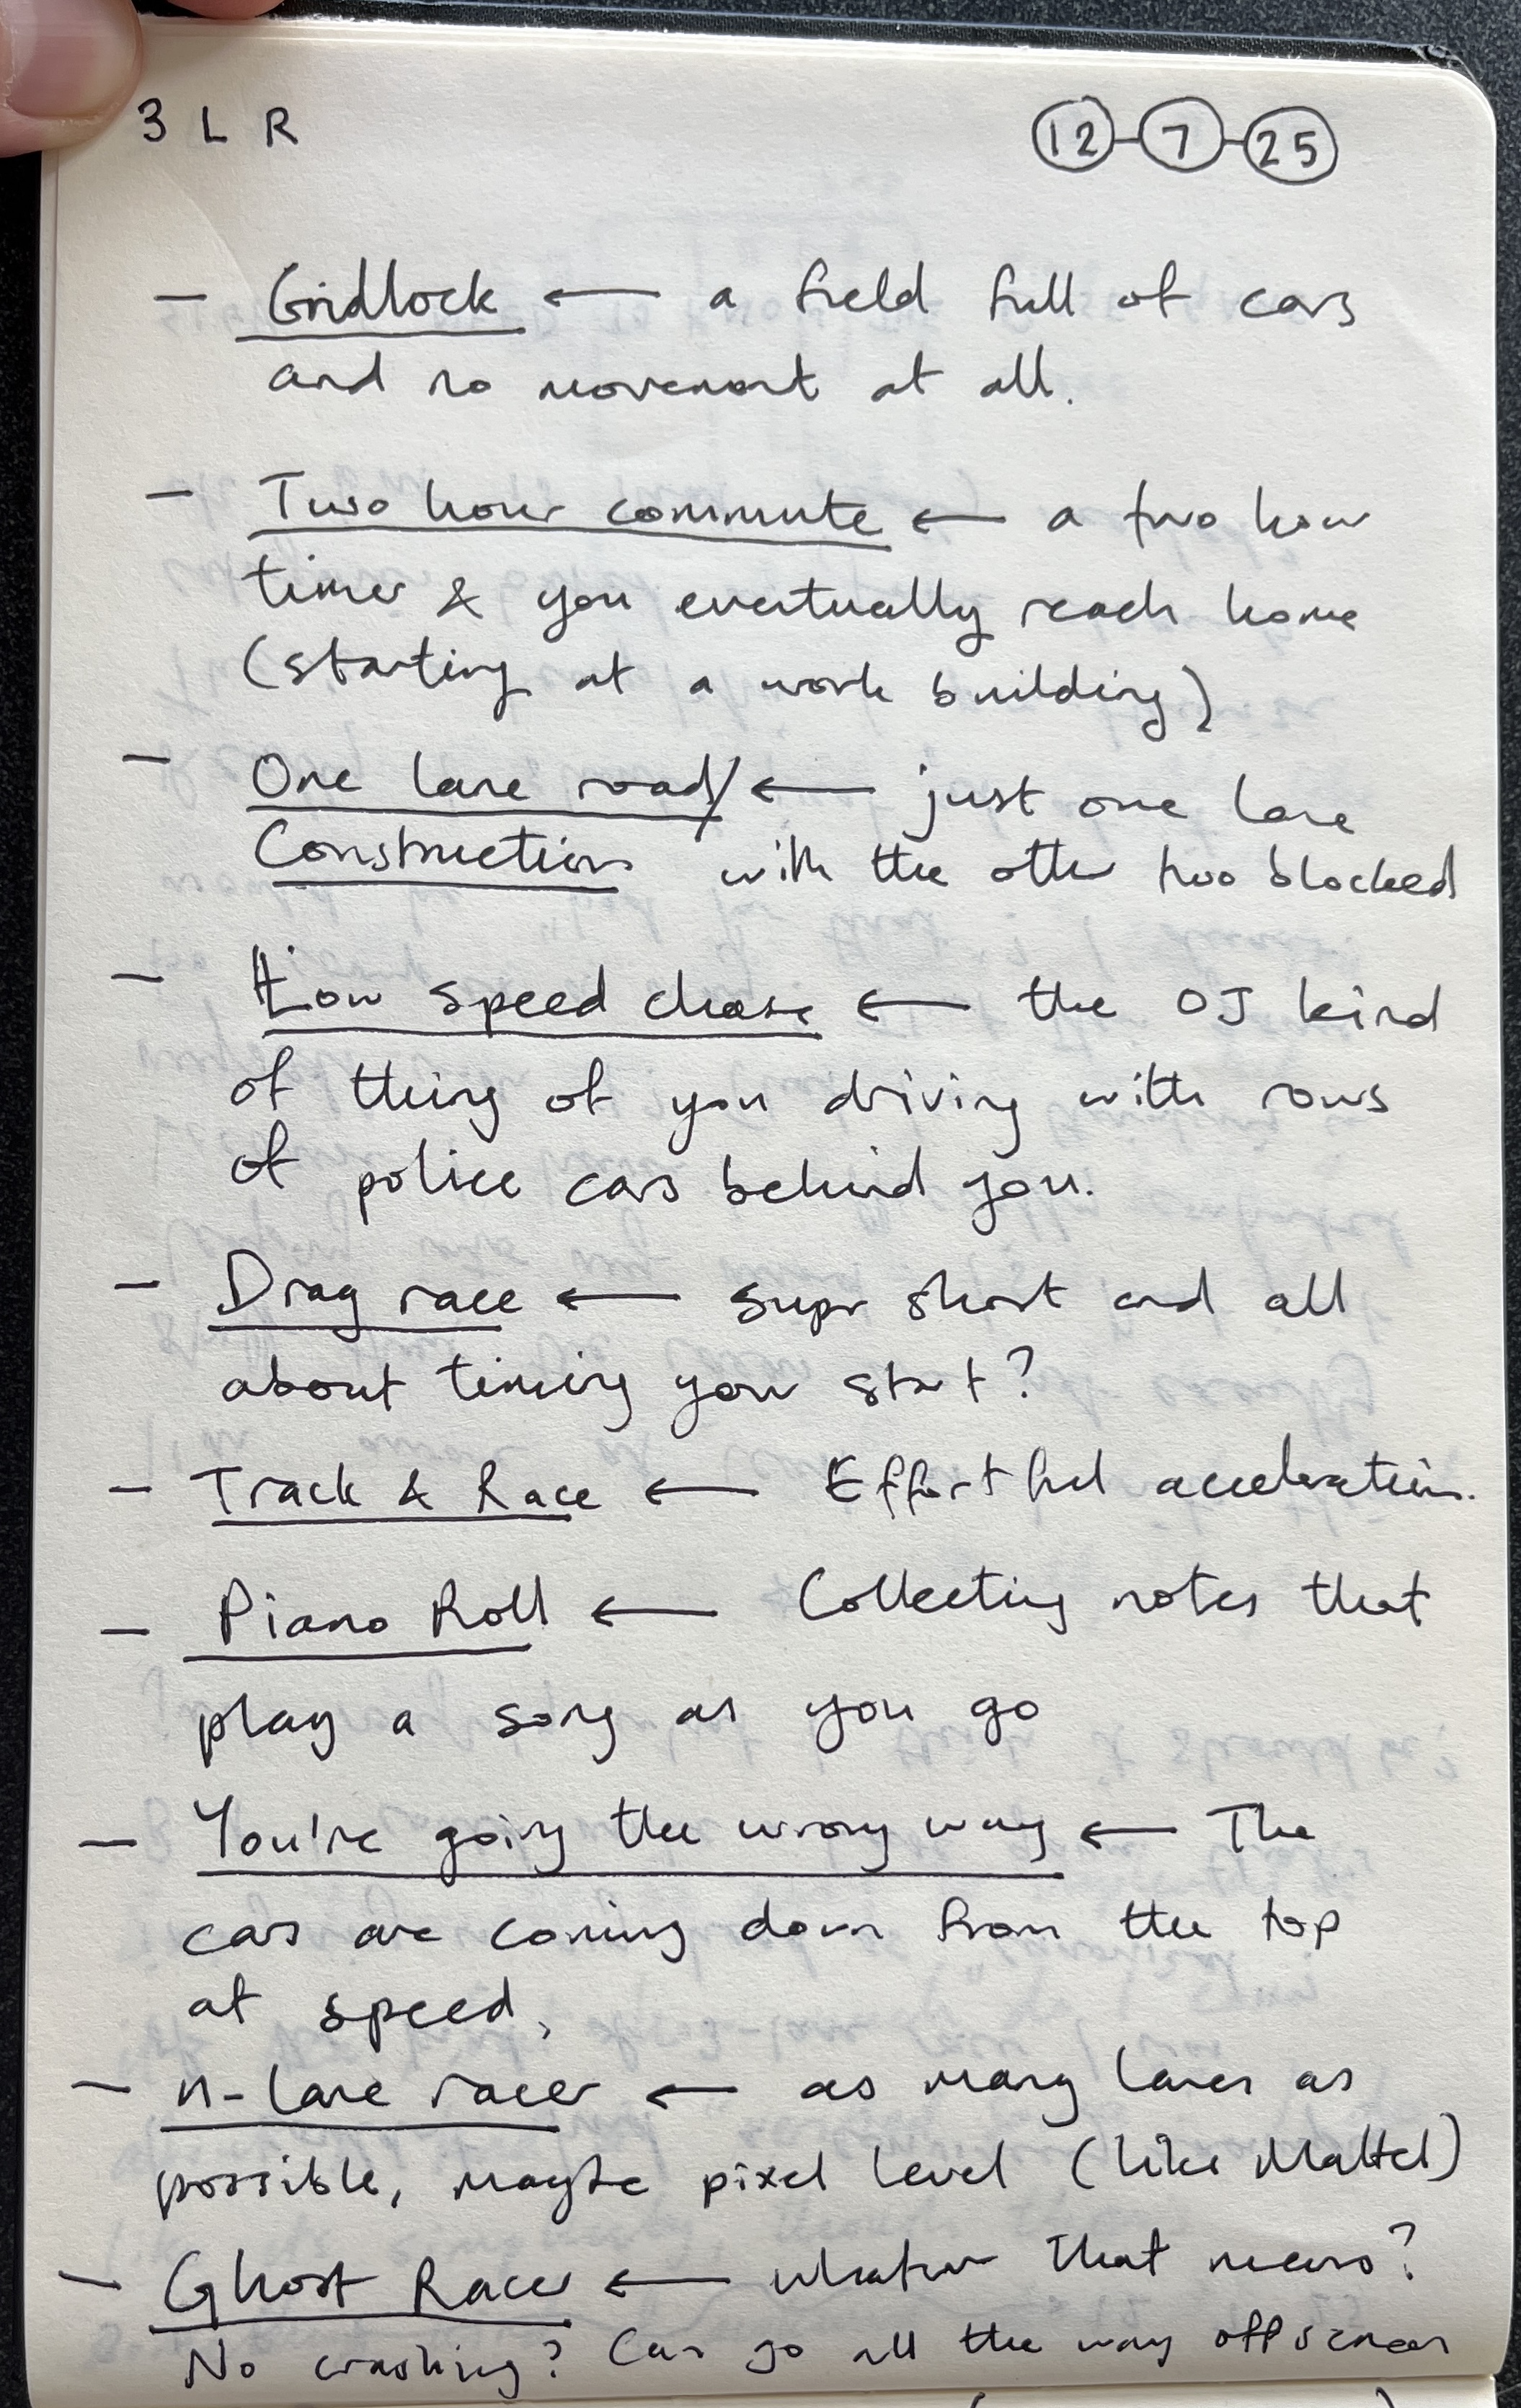 3 L R 12-7-25
- Gridlock ← a field full of cars
and no movement at all.
- Two hour commute ← a two hour
timer & you eventually reach home
(starting at a work building)
- One lare road/ ← just one lane
Construction with the other two blocked
- Low speed chase ← the OJ kind
of thing of you driving with rows
of police cars behind you.
- Drag race ← super short and all
about timing your start?
- Track & Race ← Effortful acceleration.
- Piano Roll ← Collecting notes that
play a song as you go
- You're going the wrong way ← The
cars are coming down from the top
at speed,
- n-lane racer ← as many lanes as
possible, maybe pixel level (like Mattel)
- Ghost Racer ← whatever that means?
No crashing? Can go all the way off screen